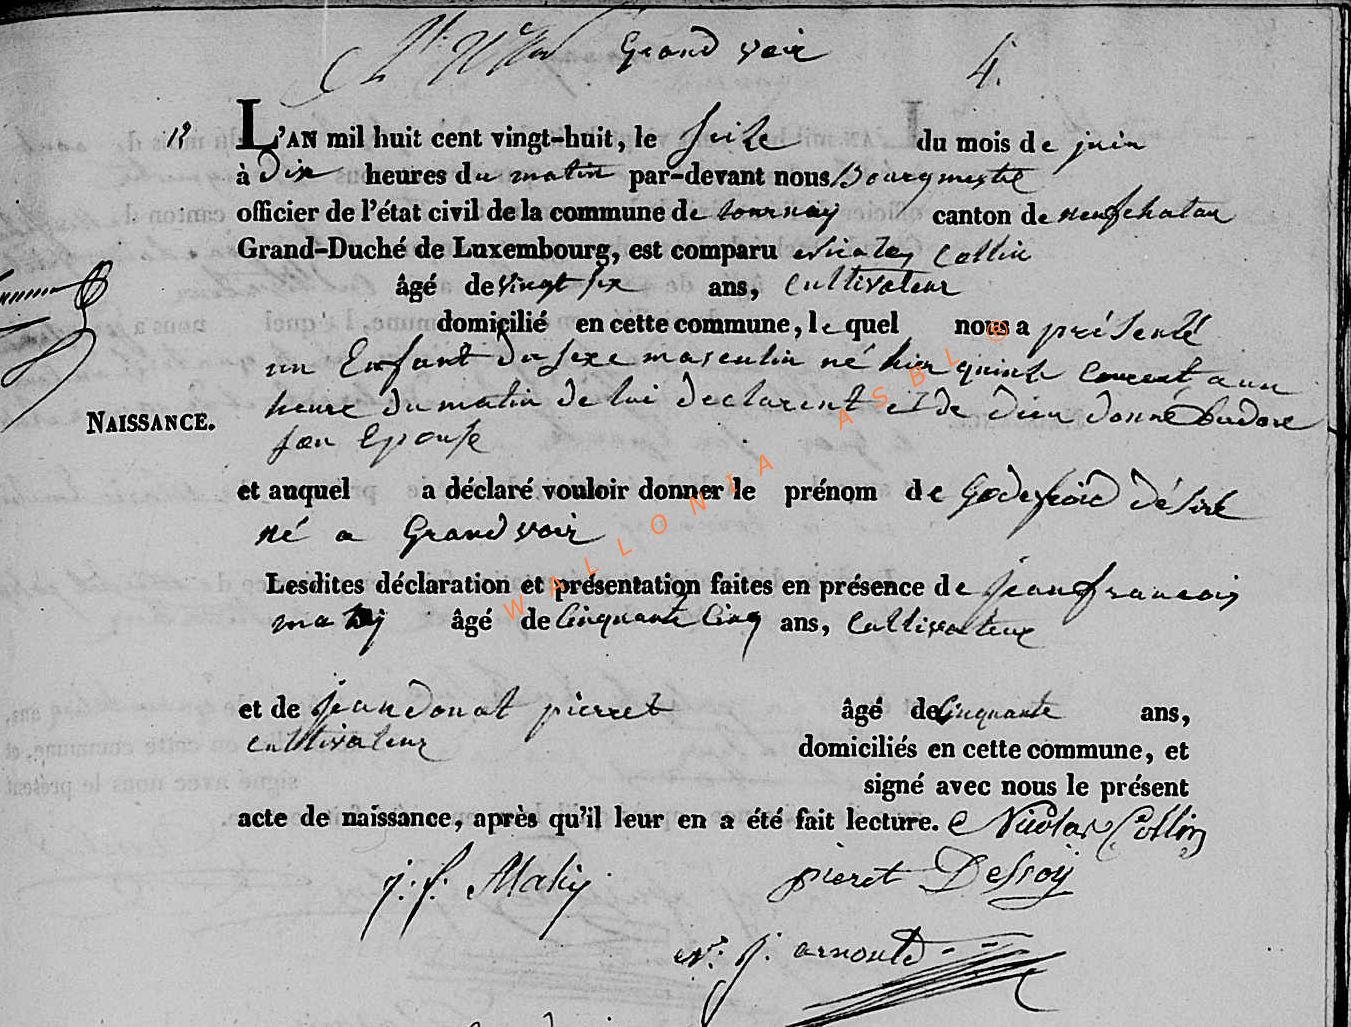 Grand voir 4.
L'AN mil huit cent vingt-huit, le seize du mois de juin
à Dix heures du matin par-devant nous Bourgmestre
officier de l'état civil de la commune de tournay canton de neufchatau
Grand-Duché de Luxembourg, est comparu Nicolas Collin
âgé de vingt six ans, Cultivateur
domicilié en cette commune, le quel nous a présenté
un Enfant du sexe masculin né hier quinze Courent a un
heure du matin de lui declarent et de Dieu donné
son Epouse
NAISSANCE.
et auquel a déclaré vouloir donner le prénom de Godefroid Désiré
né a Grand voir
Lesdites déclaration et présentation faites en présence de jean francois
mahy âgé de Cinquante Cinq ans, Cultivateur
et de jean donat pierret âgé de Cinquante ans,
cultivateur domiciliés en cette commune, et
signé avec nous le présent
acte de naissance, après qu'il leur en a été fait lecture. Nicolas Collin
j: f. Mahy pieret Dessoÿ
N: j. arnould
WALLONIA ASBL ®